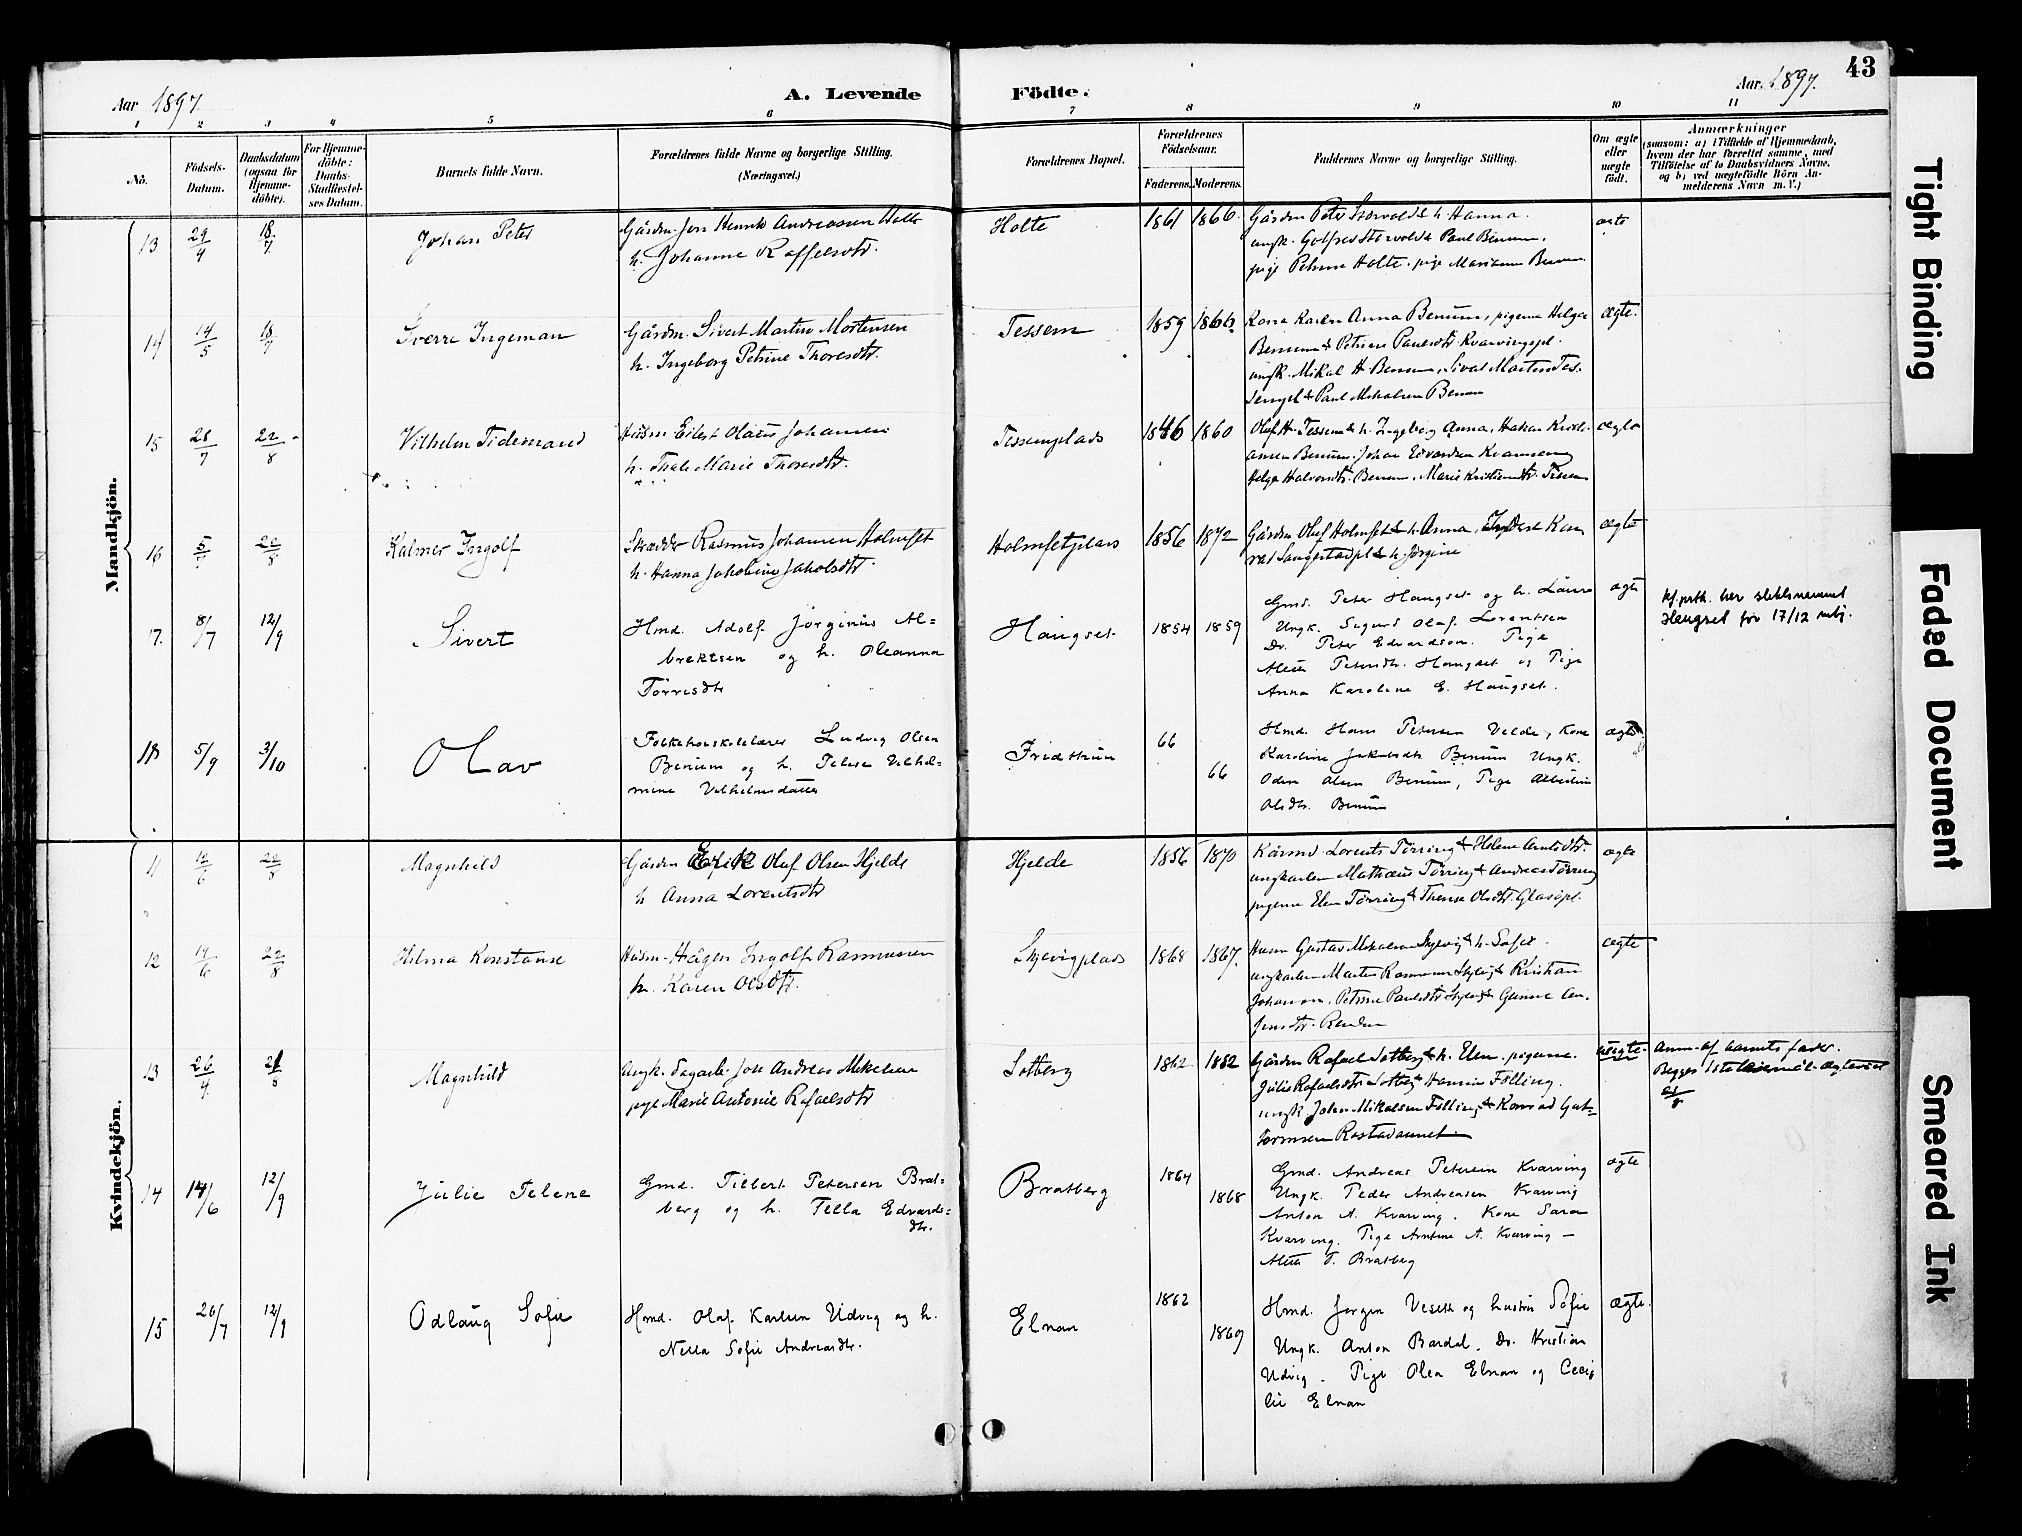 43
Aar 1897
A. Levende
Födte.
Aar. 1897.
1 2 3 4 5 6 7 8 9 10 11
No.
Födsels-
Datum.
Daabsdatum
(ogsaa for
Hjemme-
döbte).
For Hjemme-
döbte:
Daabs-
Stadfæstel-
ses Datum.
Barnets fulde Navn.
Forældrenes fulde Navne og borgerlige Stilling.
(Næringsvei.)
Forældrenes Bopæl.
Forældrenes
Födselsaar.
Faderens. Moderens.
Faddernes Navne og borgerlige Stilling.
Om ægte
eller
uægte
födt.
Anmærkninger
(saasom: a) i Tilfælde af Hjemmedaab,
hvem der har forrettet samme, med
Tilföielse af to Daabsvidners Navne,
og b) ved uægtefödte Börn An-
melderens Navn m. V.)
Mandkjön.
13 29/4 18/7 Johan Peter
Gårdm. Jon Henrik Andreassen Holte
h. Johanne Raffelsdtr.
Holte 1861 1866.
Gårdm Peter h. Hanna.
ungk. Paul Benum.
pige Petrine Holte. pige Benum
ægte
14 14/5 18/7 Sverre Ingeman
Gårdm. Sivert Martin Mortensen
h. Ingeborg Petrine Thoresdtr.
Tessem 1859 1866
Kone Karen Anna Benum, pigerne Helga
Benum & Petrine Paulsdtr. Kvarvingspl.
ungk. Mikal H Benum, Sivert Morten Tes-
& Paul Mikalsen Benum
ægte.
15 28/7 22/8 Vilhelm Tidemand
Husm Eilert Olaus Johansen
h. Thale Marie Thoresdtr.
Tessemplads 1846 1860
Olaf H. Tessem & h. Ingeborg Anna, Hakon
Benum. Johan Edvardsen
Helga Halvorsdtr. Benum, Marie Kristiansdtr. Tessem
ægte
16 5/7 22/8 Kalmer Ingolf
Skrædder Rasmus Johansen Holmset
h. Hanna Jakobine Jakobsdtr.
Holmsetplads 1856 1872
Gårdm Olaf Holmset & h. Anna,
& h. Jørgine
ægte
17. 8/7 12/9 Sivert
Hmd. Adolf Jørginus Al-
brektsen og h. Oleanna
Tørrisdtr
Haugset 1854 1859
Gmd. Peter Haugset og h. Laura
Ungk. Sigurd Olaf Lorentsen
Do. Peter Edvardsen. Pige
Petersdtr. Haugset og Pige
Anna Karoline E. Haugset.
ægte
kf. prtk. her slektsnavnet
Haugset fra 17/12
18 5/9 3/10 Olav
Folkehøiskolelærer Ludvig Olsen
Benum og h. Vilhel-
mine Vilhelmsdatter
Fridttun 66 66
Hmd. Hans Petersen Velde, Kone
Karoline Jakobsdtr Benum Ungk.
Oden Olsen Benum, Pige
Olsdtr. Benum
ægte
Kvindekjön.
11 12/6 22/8 Magnhild
Gårdm Erik Olaf Olsen Hjelde
h Anna Lorentsdtr
Hjelde 1856 1870
Kårmd. Lorents Tørring & Helene
ungkarlene Mathæus Tørring & Andreas Tørring
pigerne Elen Tørring & Therese Olsdtr. Glasöpl.
ægte
12 14/6 22/8 Hilma Konstanse
Husm. Hågen Ingolf Rasmussen
h. Karen Olsdtr.
Skjevigplads 1868 1867.
Husm Gustav Mikalsen Skjevig & h. Sofie.
ungkarlene Martin Rasmussen & Kristian
Johansen, Petrine Paulsdtr. Skjevig &
ægte
13 26/4 21/8 Magnhild
Ungk. Dagarb. Jon Andreas Mikelsen
pige Marie Antonie Rafaelsdtr
Lotberg 1862 1882
Gårdm Rafael Lotberg & h. Elen. pigerne
Julie Rafaelsdtr. Lotberg & Følling.
ungk John Mikalsen Følling & Konrad Gut-
tormsen
uægte.
Anm. af barnets fader.
Begges 1ste leiermål.
21/8
14 14/6 12/9 Julie Telene
Gmd. Tilbert Petersen Brat-
berg og h. Tella Edvards-
dtr.
Bratberg 1864 1868
Gmd. Andreas Petersen Kvarving
Ungk. Peder Andreasen Kvarving
Anton A. Kvarving. Kone Sara
Kvarving. Pige A. Kvarving —
T. Bratberg
ægte
15 20/7 12/9 Odlaug Sofie
Hmd. Olaf Karlsen Udvig og h.
Nella Sofie Andreasdtr.
Elnan 1862 1869
Hmd. Jørgen Veseth og hustru Sofie
Ungk. Anton Bardal. Do. Kristian
Udvig. Pige Olea Elnan og Ceci-
lie Elnan
ægte.
Tight Binding
Faded Document
Smeared Ink